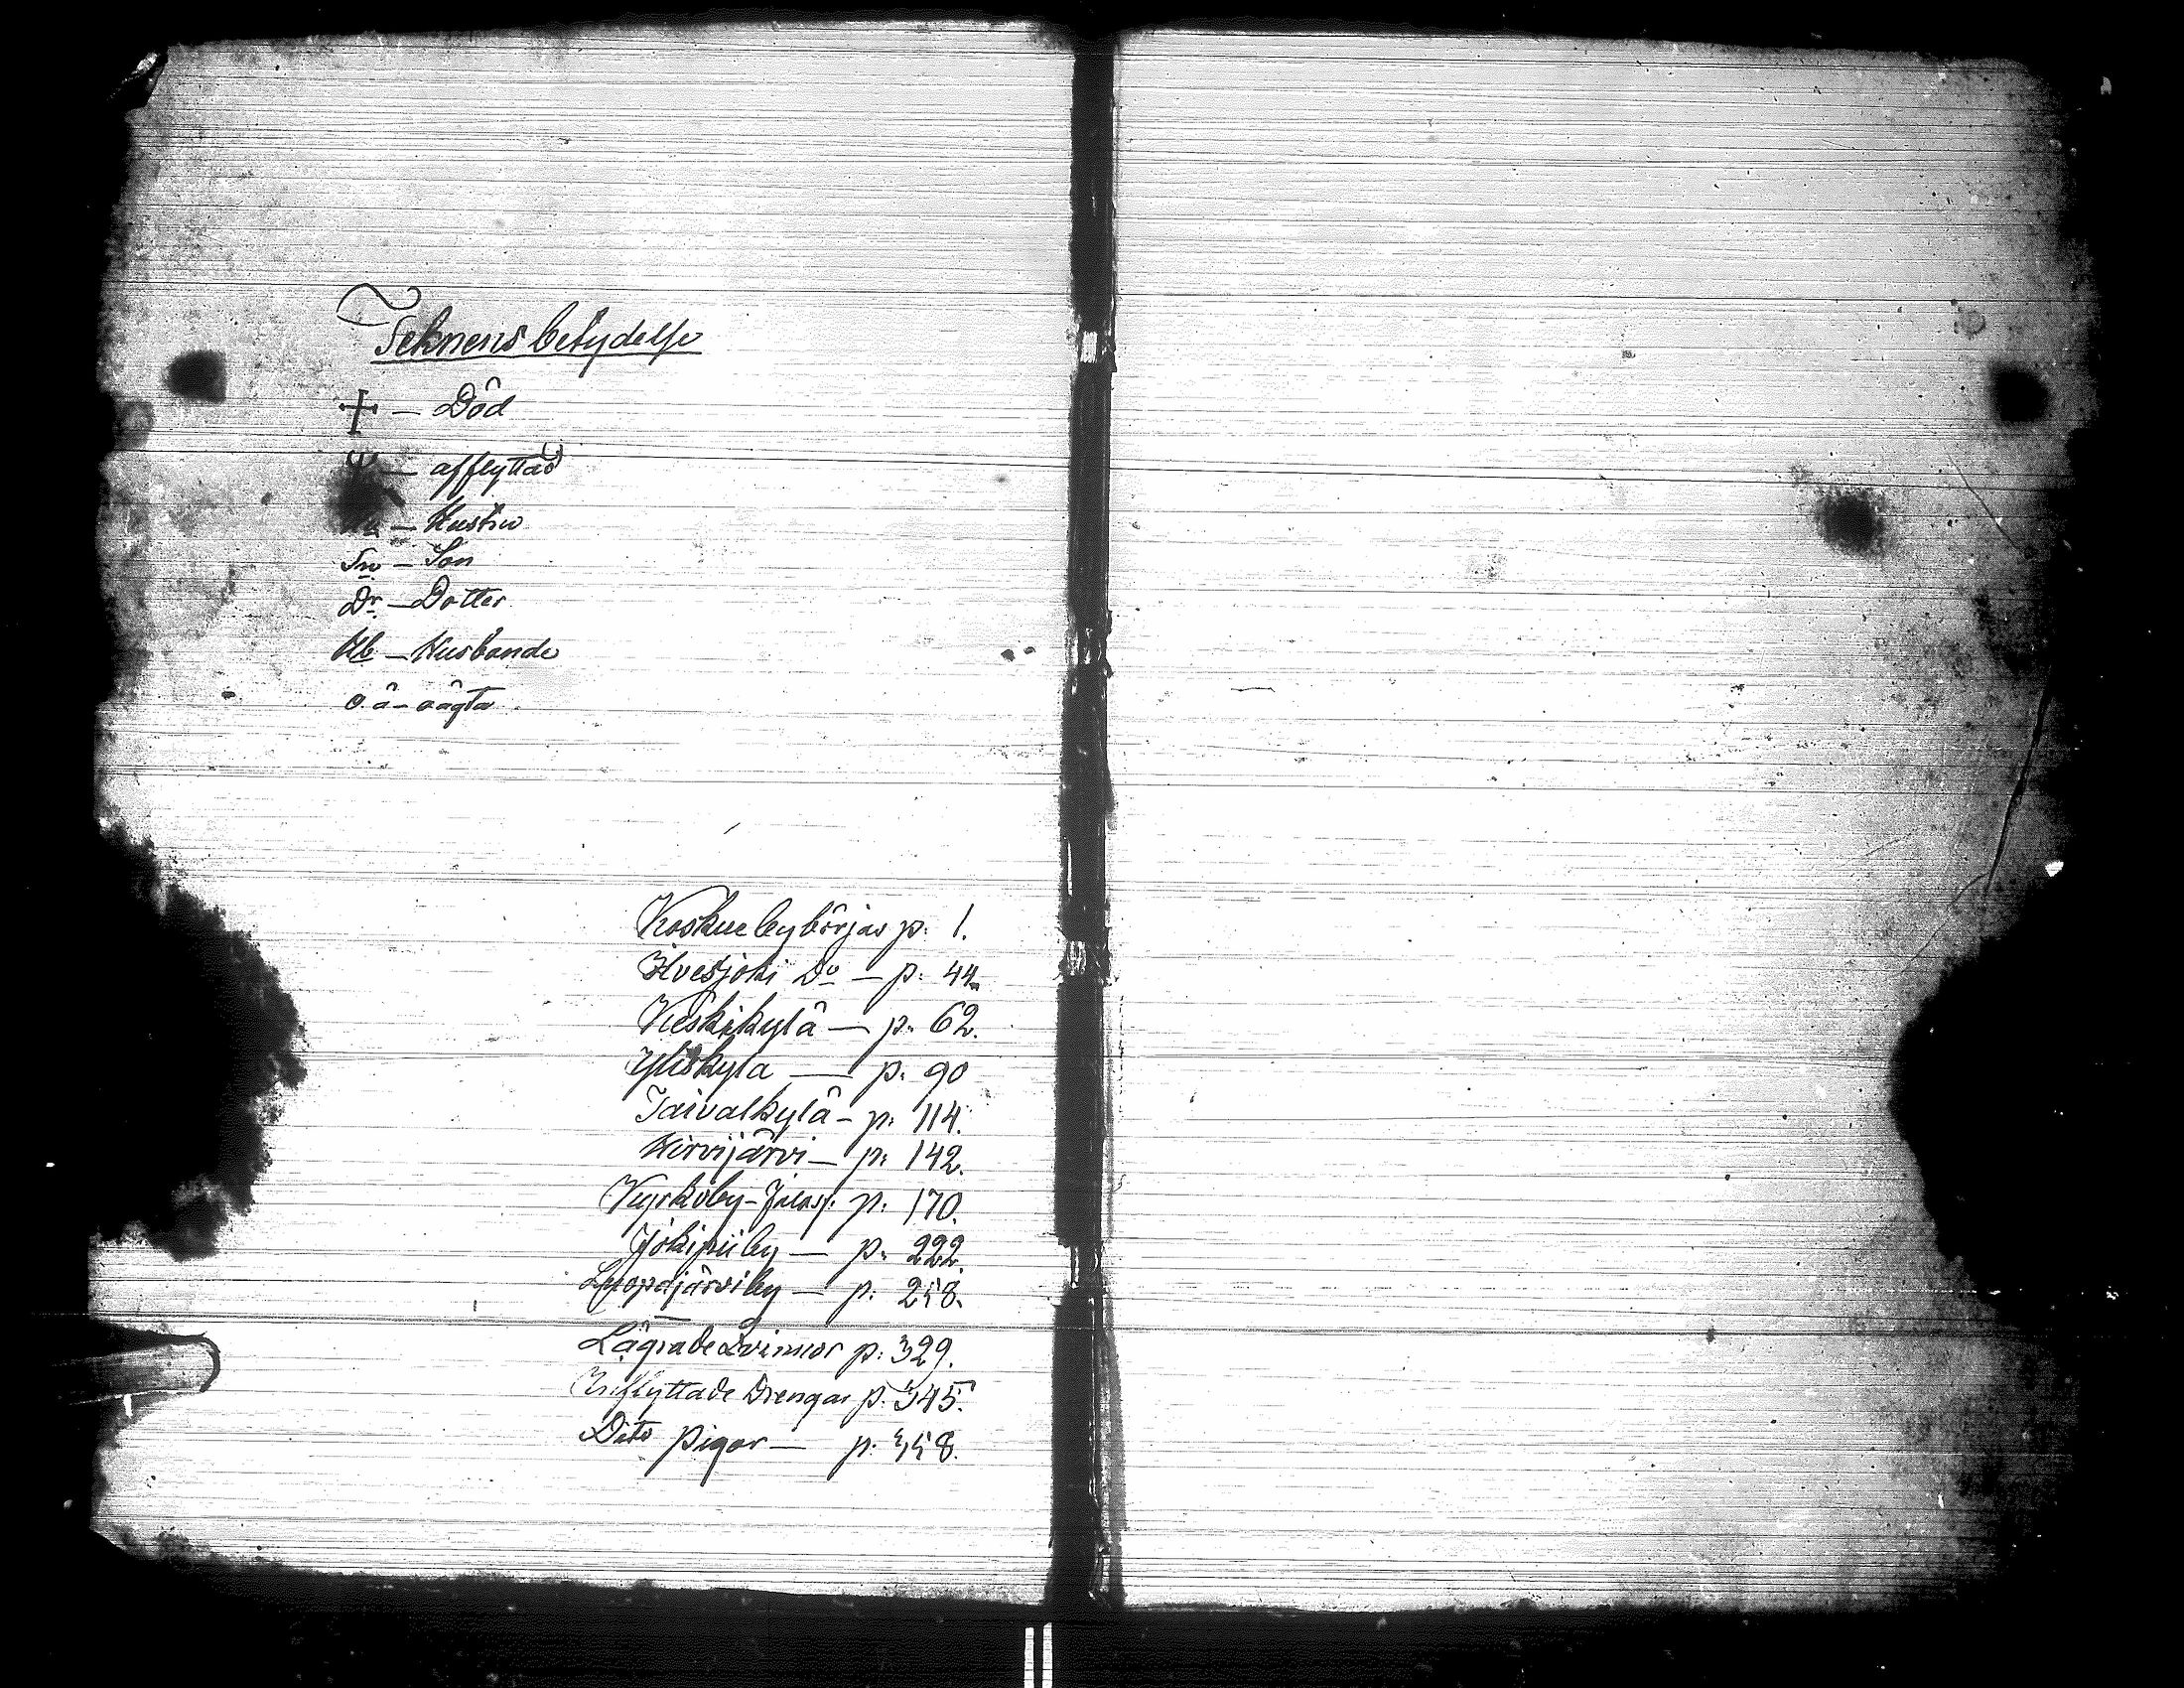 Teknens betydelse
† — Död
Ψ — afflyttad
— Hustru
Sn — Son
Dr — Dotter
Hb — Husbonde
o.ä — oägta
Koskue by börjas p. 1.
Ilvesjoki Do — p. 44
Keskikylä — p. 62.
Yliskyla — p. 90
Taivalkylä — p. 114.
Hirvijärvi — p. 142.
Kyrkoby - Jalasj: p. 170.
Jokipii by — p. 222.
Luopajärvi by — p. 258.
Lägrade Qvinnor p. 329.
Inflyttade Drengar p. 345.
Dito pigor — p. 358.